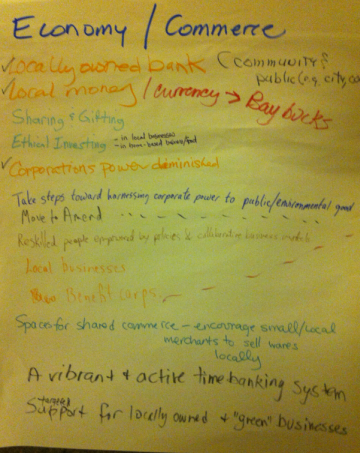 Economy / Commerce
✓Locally owned bank (community?
public (e.g. city, co
✓Local money / currency → Bay bucks
Sharing & Gifting
Ethical Investing - in local businesses
- in home-based
✓Corporations power diminished
Take steps toward harnessing corporate power to public/environmental good
Move to Amend
Reskilled people empowered by policies & collaborative business models
Local businesses
Benefit corps.
Space for shared commerce - encourage small/local
merchants to sell wares
locally
A vibrant & active timebanking system
targeted
Support for locally owned & "green" businesses